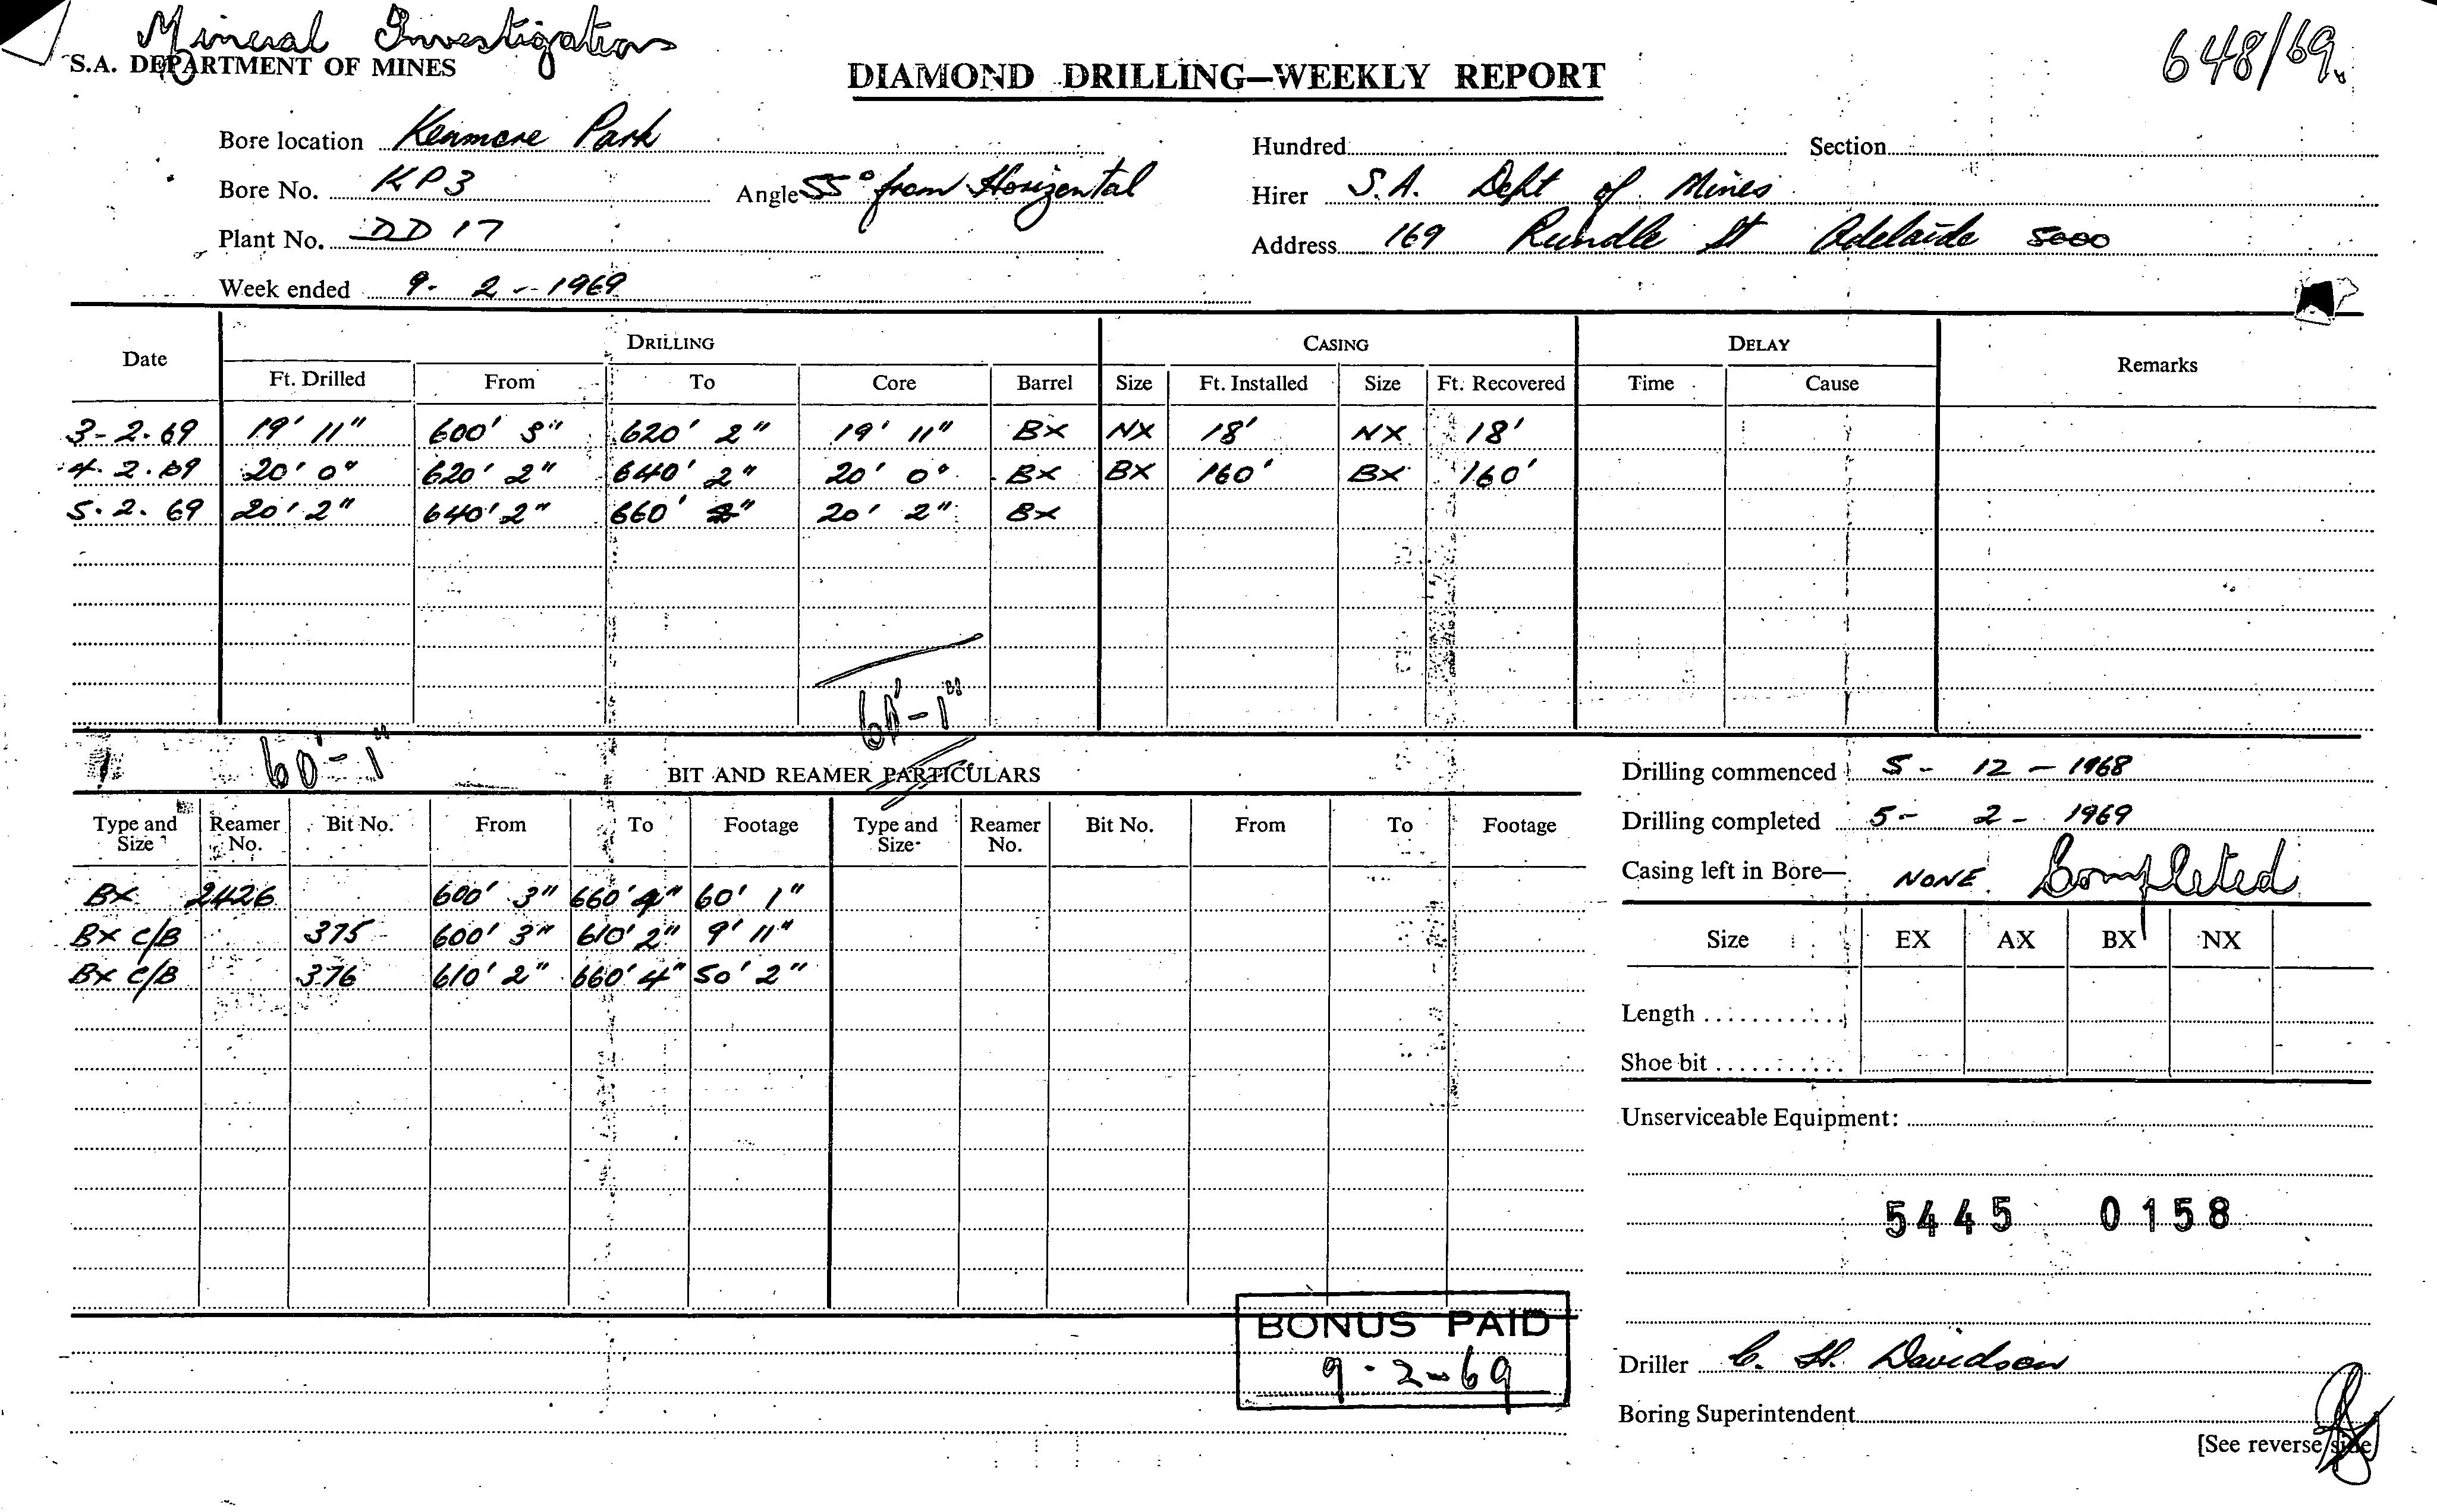 Mineral Investigations
648/69.
S.A. DEPARTMENT OF MINES
DIAMOND DRILLING—WEEKLY REPORT
Bore location Kenmore Park
Hundred Section
Bore No. KP3 Angle 55° from Horizontal
Hirer S.A. Dept of Mines
Plant No. DD 17
Address 169 Rundle St Adelaide 5000
Week ended 9. 2 - 1969
Date DRILLING CASING DELAY Remarks
Ft. Drilled From To Core Barrel Size Ft. Installed Size Ft. Recovered Time Cause
3-2.69 19' 11" 600' 3" 620' 2" 19' 11" BX NX 18' NX 18'
4.2.69 20' 0" 620' 2" 640' 2" 20' 0" BX BX 160' BX 160'
5.2.69 20' 2" 640' 2" 660' 20' 2" BX
60'-1"
60'-1"
BIT AND REAMER PARTICULARS
Type and Size Reamer No. Bit No. From To Footage Type and Size Reamer No. Bit No. From To Footage
BX 2426 600' 3" 660' 4" 60' 1"
BX C/B 375 600' 3" 610' 2" 9' 11"
BX C/B 376 610' 2" 660' 4" 50' 2"
Drilling commenced 5 - 12 - 1968
Drilling completed 5 - 2 - 1969
Casing left in Bore— NONE Completed
Size EX AX BX NX
Length ............
Shoe bit ...........
Unserviceable Equipment:
5445 0158
BONUS PAID
9-2-69
Driller C. H. Davidson
Boring Superintendent
[See reverse side